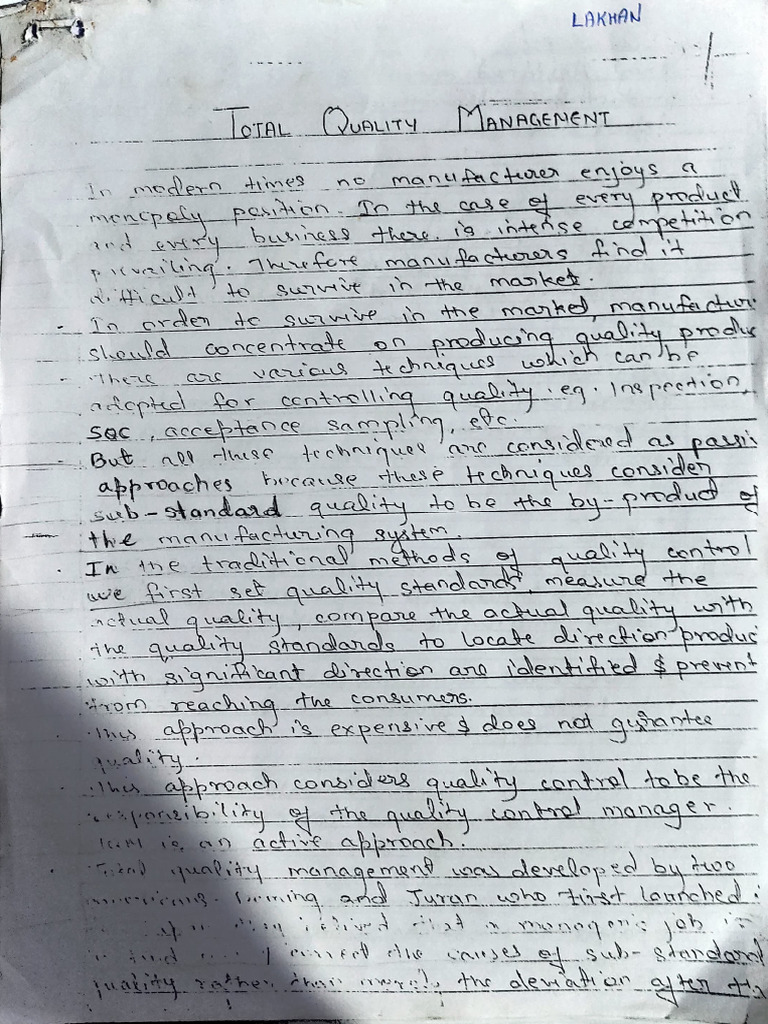 LAKHAN
1
TOTAL QUALITY MANAGEMENT
In modern times no manufacturer enjoys a
monopoly position. In the case of every product
and every business there is intense competition
prevailing. Therefore manufacturers find it
difficult to survive in the market.
In order to survive in the market, manufactur
should concentrate on producing quality produc
There are various techniques which can be
adopted for controlling quality. eg. Inspection,
SQC, acceptance sampling, etc.
But all these techniques are considered as passi
approaches because these techniques consider
sub-standard quality to be the by-product of
the manufacturing system.
In the traditional methods of quality control
we first set quality standards, measure the
actual quality, compare the actual quality with
the quality standards to locate direction produc
with significant direction are identified & prevent
from reaching the consumers.
This approach is expensive & does not gurantee
quality.
This approach considers quality control to be the
responsibility of the quality control manager.
is an active approach.
Total quality management was developed by two
Deming and Juran who first launched
that a manager's job
correct the causes of sub-standard
quality rather than merely the deviation after the